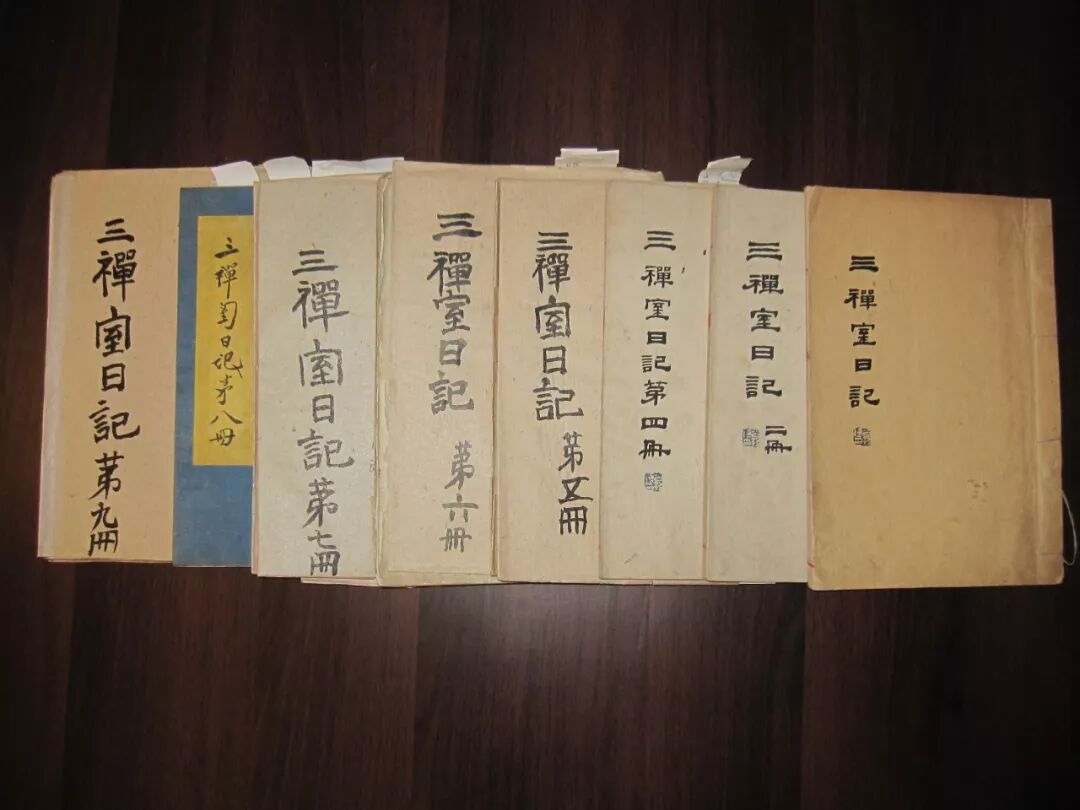 三禪室日記
三禪室日記
二冊
三禪室日記第四冊
三禪室日記
第五冊
三禪室日記
第六冊
三禪室日記第七冊
三禪日記第八冊
三禪室日記第九冊